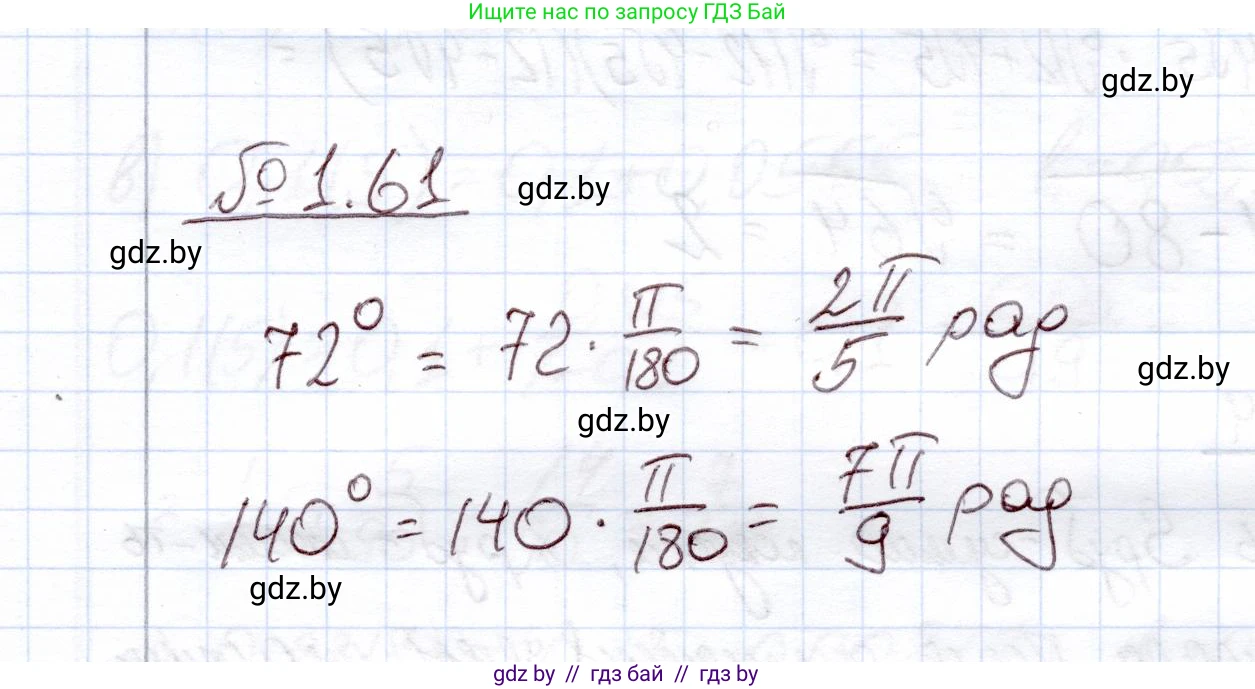 Ищите нас по запросу ГДЗ Бай
gdz.by
№ 1.61
gdz.by
gdz.by
72° = 72 · π/180 = 2π/5 рад
gdz.by
gdz.by
140° = 140 · π/180 = 7π/9 рад
gdz.by
gdz.by // гдз бай // gdz by